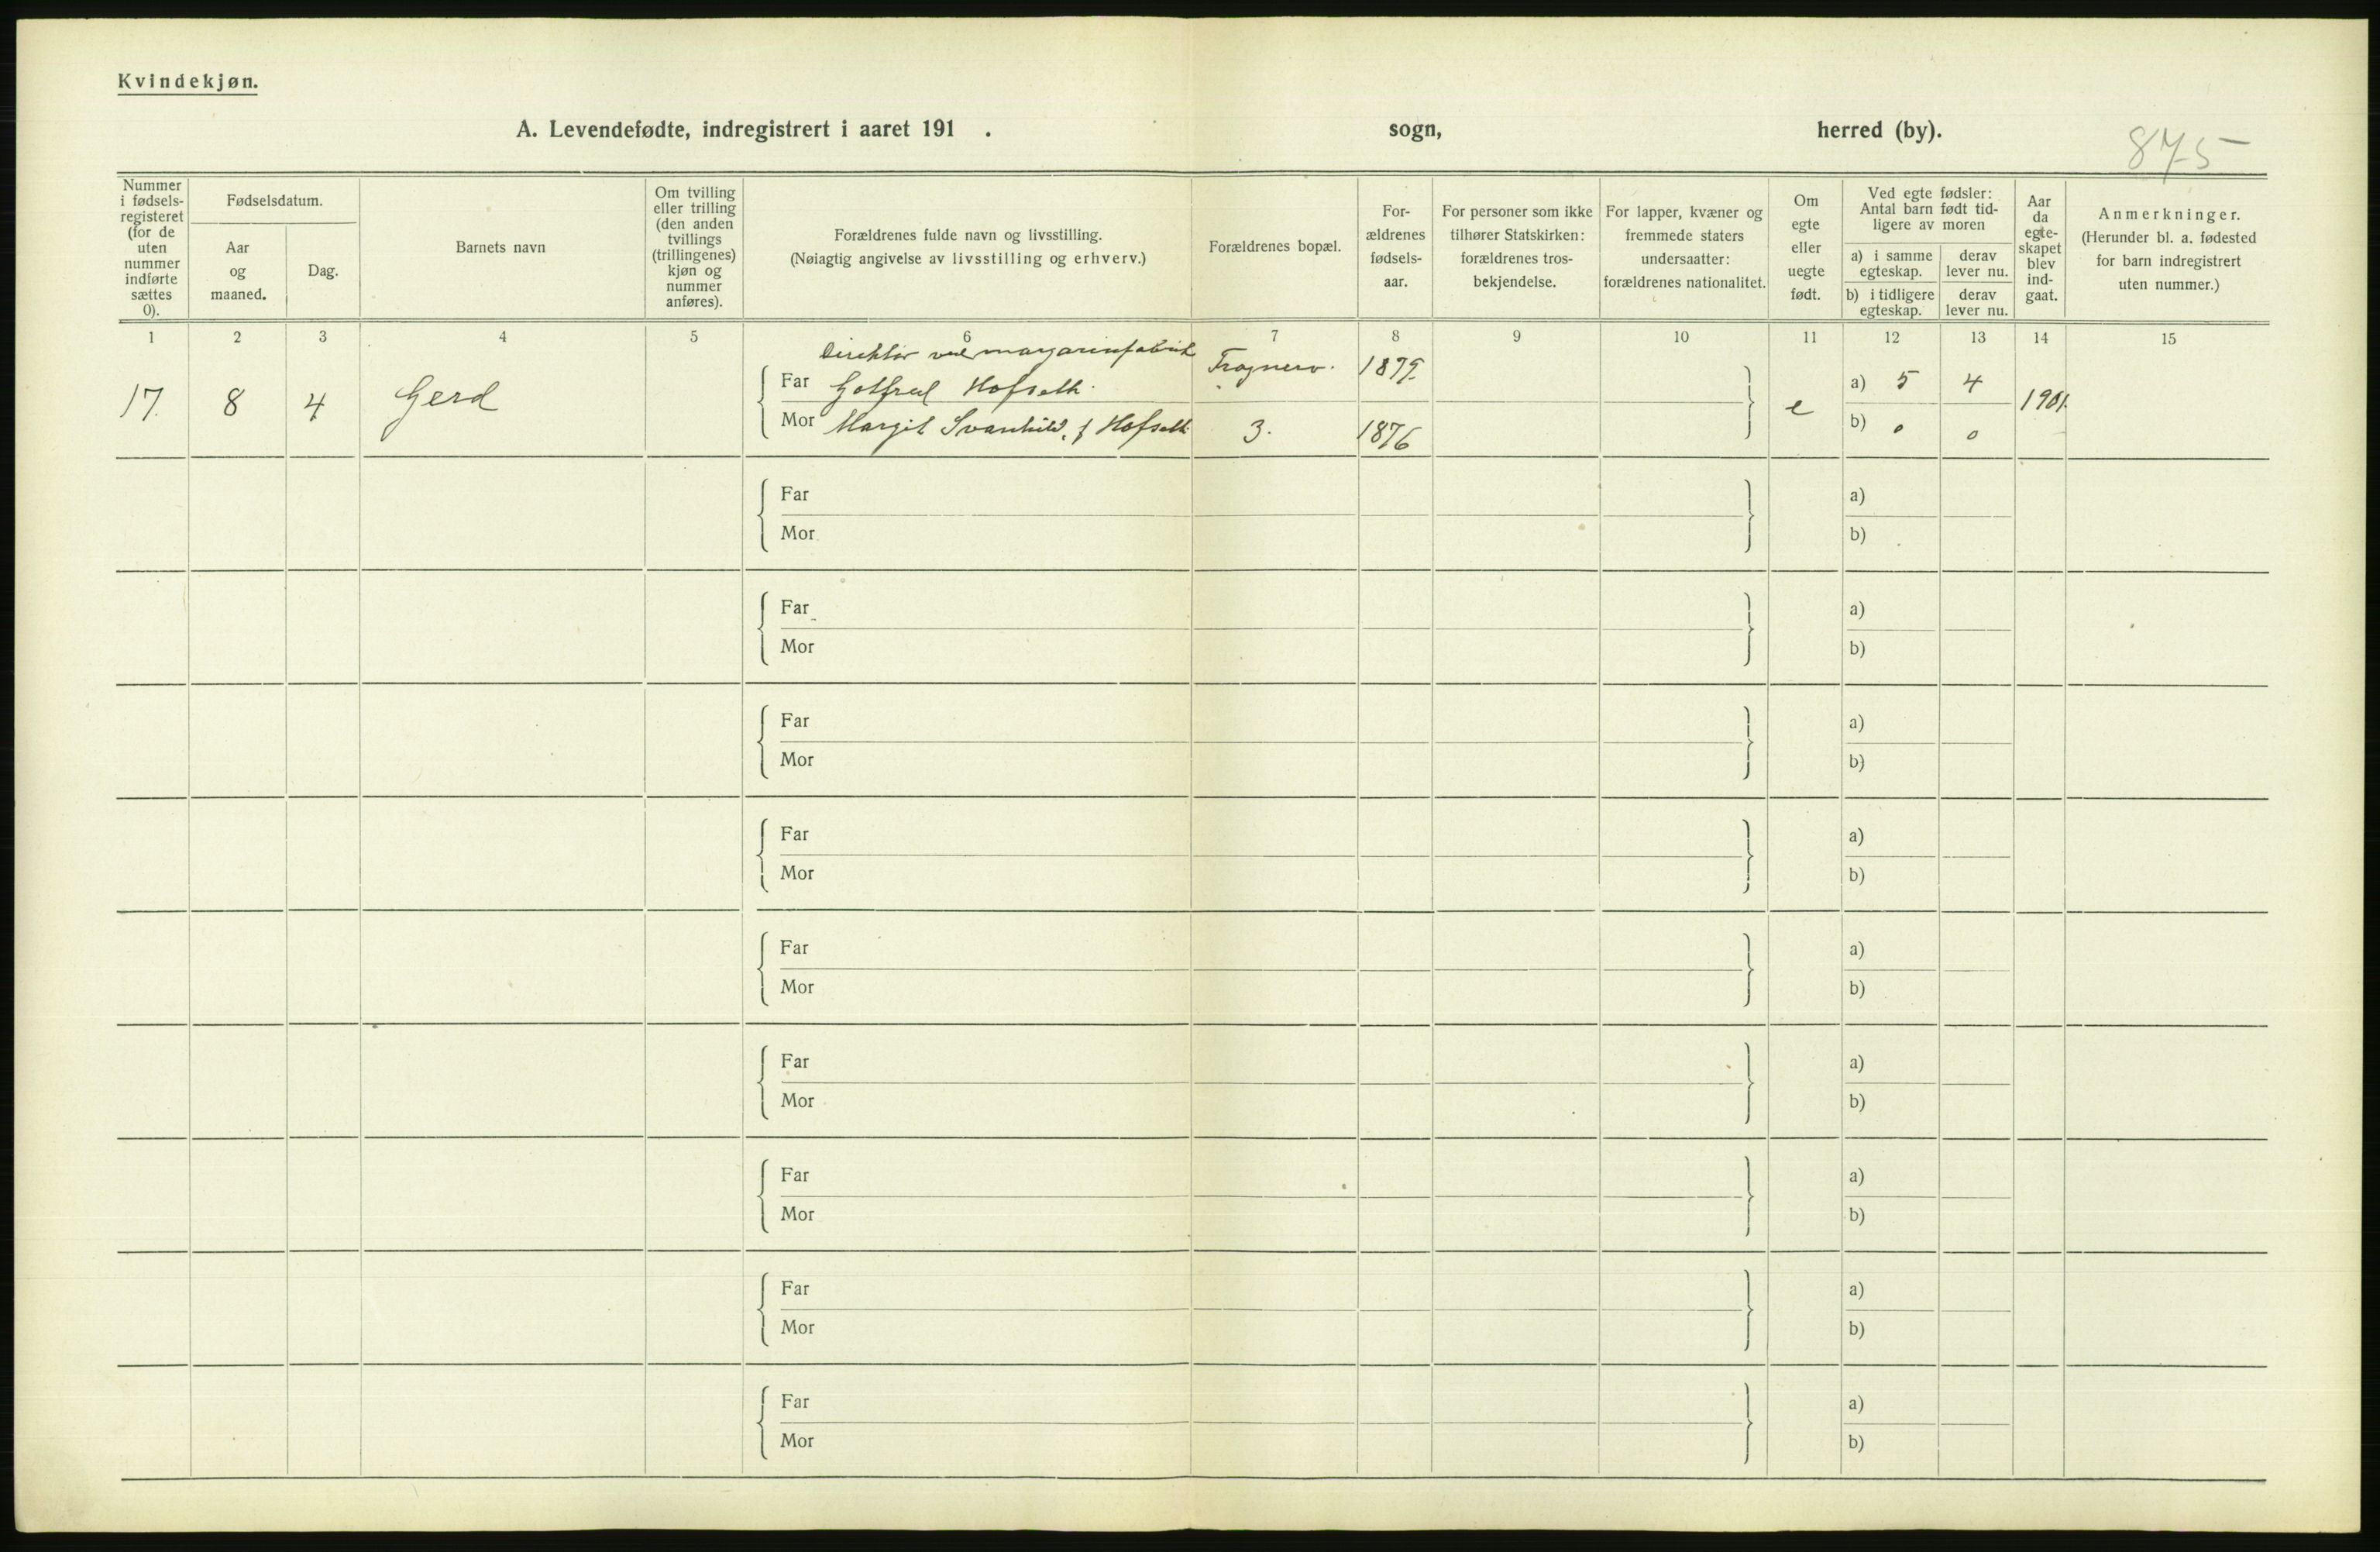 Kvindekjøn.
A. Levendefødte, indregistrert i aaret 191 . sogn, herred (by).
875
Nummer i fødsels-registeret (for de uten nummer indførte sættes 0).
Fødselsdatum.
Aar og maaned.
Dag.
Barnets navn
Om tvilling eller trilling (den anden tvillings (trillingenes) kjøn og nummer anføres).
Forældrenes fulde navn og livsstilling.
(Nøiagtig angivelse av livsstilling og erhverv.)
Forældrenes bopæl.
For-ældrenes fødsels-aar.
For personer som ikke tilhører Statskirken: forældrenes tros-bekjendelse.
For lapper, kvæner og fremmede staters undersaatter: forældrenes nationalitet.
Om egte eller uegte født.
Ved egte fødsler: Antal barn født tid-ligere av moren
a) i samme egteskap.
derav lever nu.
b) i tidligere egteskap.
derav lever nu.
Aar da egte-skapet blev ind-gaat.
Anmerkninger.
(Herunder bl. a. fødested for barn indregistrert uten nummer.)
1 2 3 4 5 6 7 8 9 10 11 12 13 14 15
Direktør ved margarinfabrik
17. 8 4 Gerd
Far Gotfred Hofseth. Frognerv. 1879. a) 5 4
e 1901.
Mor Margit Svanhild, f Hofseth 3. 1876 b) 0 0
Far a)
Mor b)
Far a)
Mor b)
Far a)
Mor b)
Far a)
Mor b)
Far a)
Mor b)
Far a)
Mor b)
Far a)
Mor b)
Far a)
Mor b)
Far a)
Mor b)